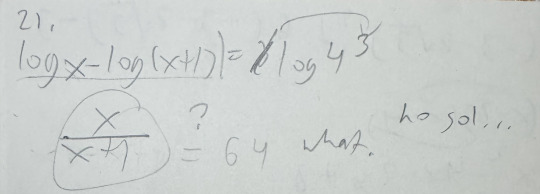 21.
log x - log(x+1) = log 4^3
x/(x+1) ?= 64 what. no sol...